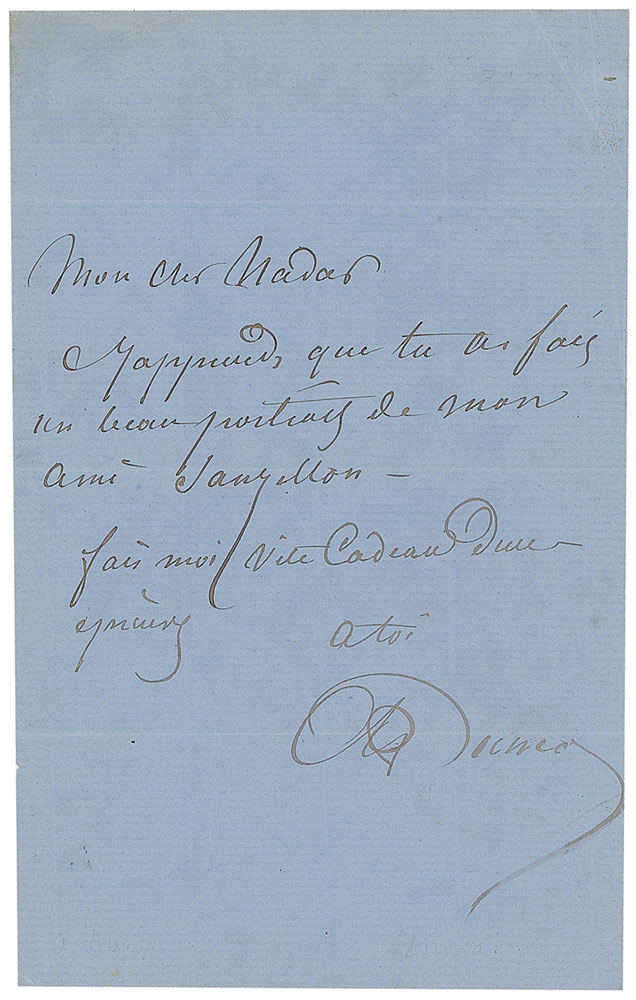 Mon cher Nadar
J'apprends que tu as fais
un beau portrait de mon
ami
fais moi vite Cadeau dune
epreuve a toi
Alex Dumas